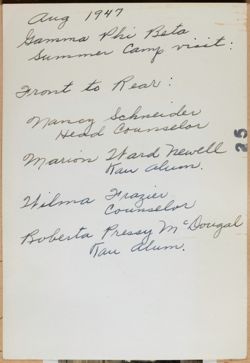 Aug 1947
Gamma Phi Beta
Summer Camp visit:
Front to Rear:
Nancy Schneider
Head Counselor
Marion Ward Newell
Tau Alum.
Wilma Frazier
Counselor
Roberta Pressy McDougal
Tau Alum.
25